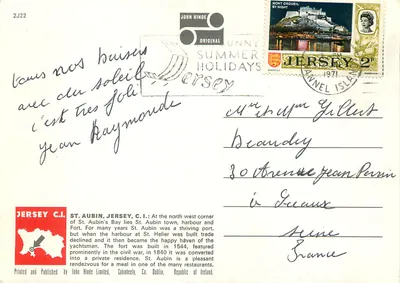 2J22
JOHN HINDE
ORIGINAL
SUNNY
SUMMER
HOLIDAYS
Jersey
MONT ORGUEIL
BY NIGHT
JERSEY 2p
1971
CHANNEL ISLANDS
Tous nos baisers
avec du soleil
c'est très joli
Jean Raymonde
Mr et Mme Gilbert
Beaudry
30 Avenue Jean Perrin
à Sceaux
Seine
France
JERSEY C.I.
ST. AUBIN, JERSEY, C.I.: At the north west corner
of St. Aubin's Bay lies St. Aubin town, harbour and
Fort. For many years St. Aubin was a thriving port,
but when the harbour at St. Helier was built trade
declined and it then became the happy haven of the
yachtsman. The fort was built in 1544, featured
prominently in the civil war, in 1840 it was converted
into a private residence. St. Aubin is a pleasant
rendezvous for a meal in one of the many restaurants.
Printed and Published by John Hinde Limited, Cabinteely, Co. Dublin, Republic of Ireland.